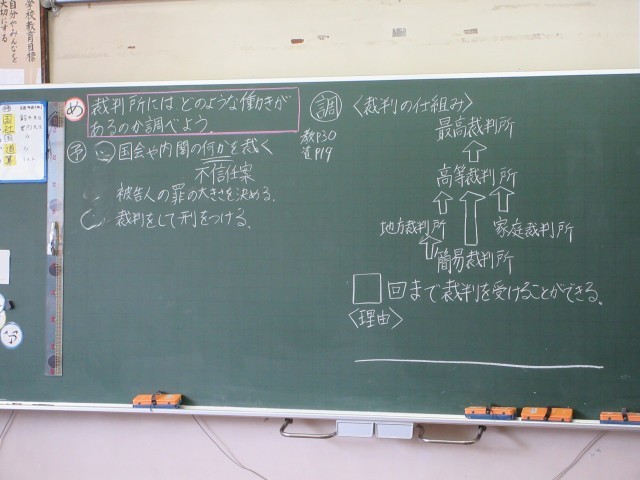 学校教育目標
自分やみんなを
大切にする
国
社
道
算
め 裁判所には どのような働きが
あるのか調べよう。
予 国会や内閣の何かを裁く
不信任案
被告人の罪の大きさを決める。
裁判をして刑をつける。
調 〈裁判の仕組み〉
教P30
資P19
最高裁判所
高等裁判所
地方裁判所 家庭裁判所
簡易裁判所
□回まで裁判を受けることができる。
〈理由〉